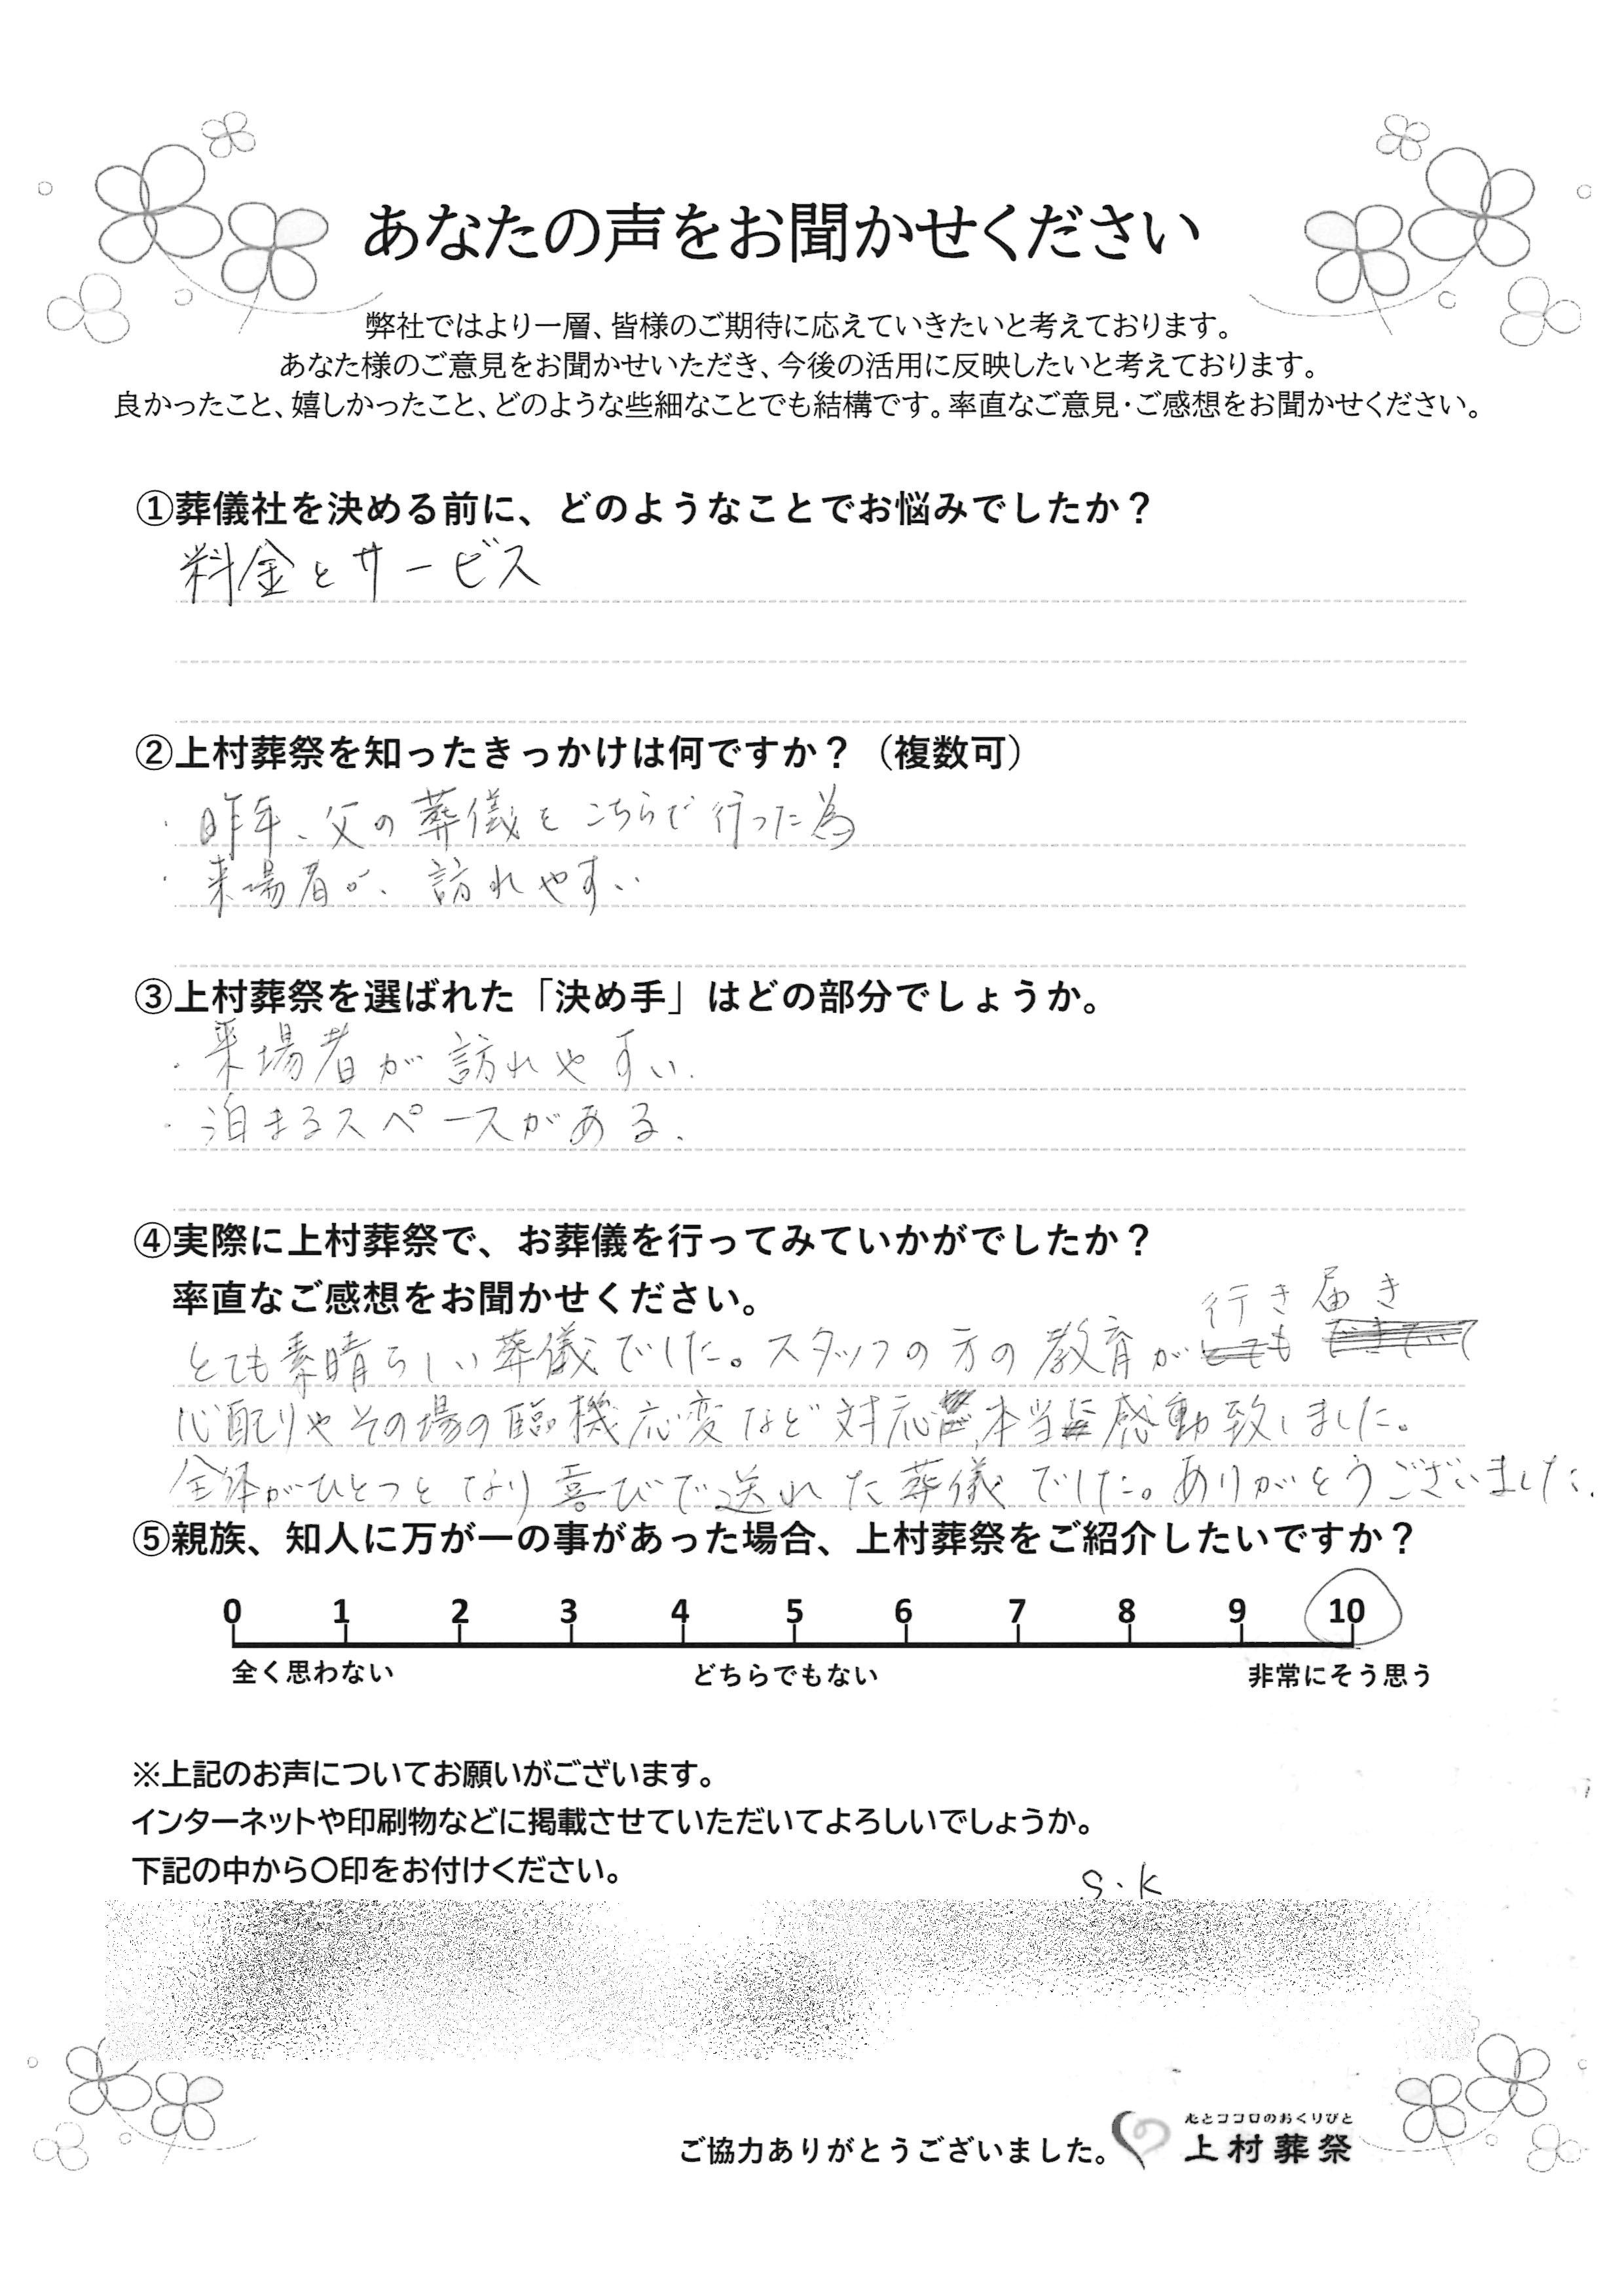 あなたの声をお聞かせください
弊社ではより一層、皆様のご期待に応えていきたいと考えております。
あなた様のご意見をお聞かせいただき、今後の活用に反映したいと考えております。
良かったこと、嬉しかったこと、どのような些細なことでも結構です。率直なご意見・ご感想をお聞かせください。
①葬儀社を決める前に、どのようなことでお悩みでしたか？
料金とサービス
②上村葬祭を知ったきっかけは何ですか？（複数可）
・昨年、父の葬儀をこちらで行った為
・来場者が、訪れやすい
③上村葬祭を選ばれた「決め手」はどの部分でしょうか。
・来場者が訪れやすい.
・泊まるスペースがある.
④実際に上村葬祭で、お葬儀を行ってみていかがでしたか？
率直なご感想をお聞かせください。
行き届き
とても素晴らしい葬儀でした。スタッフの方の教育が
心配りやその場の臨機応変など対応、本当に感動致しました。
全体がひとつとなり喜びで送れた葬儀でした。ありがとうございました.
⑤親族、知人に万が一の事があった場合、上村葬祭をご紹介したいですか？
0 1 2 3 4 5 6 7 8 9 10
全く思わない どちらでもない 非常にそう思う
※上記のお声についてお願いがございます。
インターネットや印刷物などに掲載させていただいてよろしいでしょうか。
下記の中から〇印をお付けください。
S.K
心とココロのおくりびと
ご協力ありがとうございました。上村葬祭